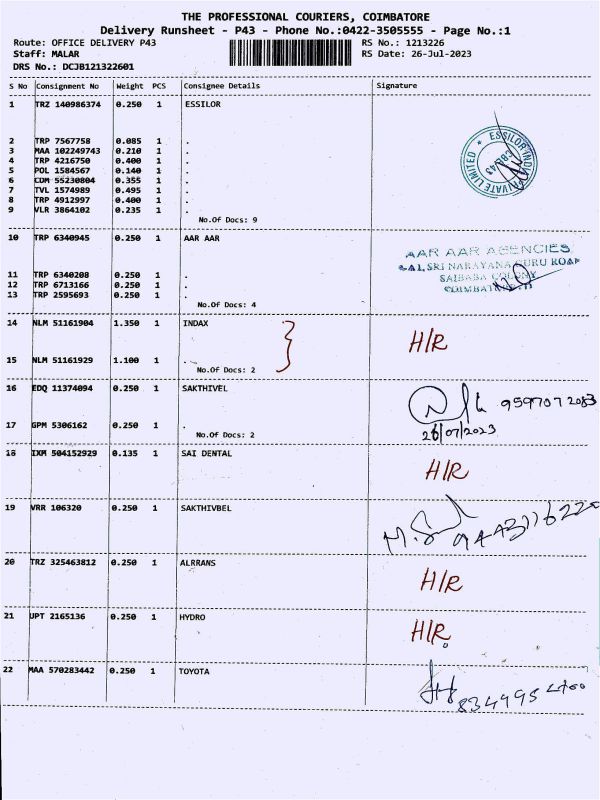 THE PROFESSIONAL COURIERS, COIMBATORE
Delivery Runsheet - P43 - Phone No.:0422-3505555 - Page No.:1
Route: OFFICE DELIVERY P43 RS No.: 1213226
Staff: MALAR RS Date: 26-Jul-2023
DRS No.: DCJB121322601
S No Consignment No Weight PCS Consignee Details Signature
1 TRZ 140986374 0.250 1 ESSILOR
ESSILOR INDIA PRIVATE LIMITED
2 TRP 7567758 0.085 1 .
3 MAA 102249743 0.210 1 .
4 TRP 4216750 0.400 1 .
5 POL 1584567 0.140 1 .
6 CUM 55230804 0.355 1 .
7 TVL 1574989 0.495 1 .
8 TRP 4912997 0.400 1 .
9 VLR 3864102 0.235 1 .
No.Of Docs: 9
10 TRP 6340945 0.250 1 AAR AAR
AAR AAR AGENCIES
SRI NARAYANA GURU ROAD
SAIBABA COLONY
11 TRP 6340208 0.250 1 .
12 TRP 6713166 0.250 1 .
13 TRP 2595693 0.250 1 .
No.Of Docs: 4
14 NLM 51161904 1.350 1 INDAX
H/R
15 NLM 51161929 1.100 1 .
No.Of Docs: 2
16 EDQ 11374094 0.250 1 SAKTHIVEL
9597072083
17 GPM 5306162 0.250 1 .
26/07/2023
No.Of Docs: 2
18 IXM 504152929 0.135 1 SAI DENTAL
H/R
19 VRR 106320 0.250 1 SAKTHIVBEL
9443116220
20 TRZ 325463812 0.250 1 ALRRANS
H/R
21 UPT 2165136 0.250 1 HYDRO
H/R.
22 MAA 570283442 0.250 1 TOYOTA